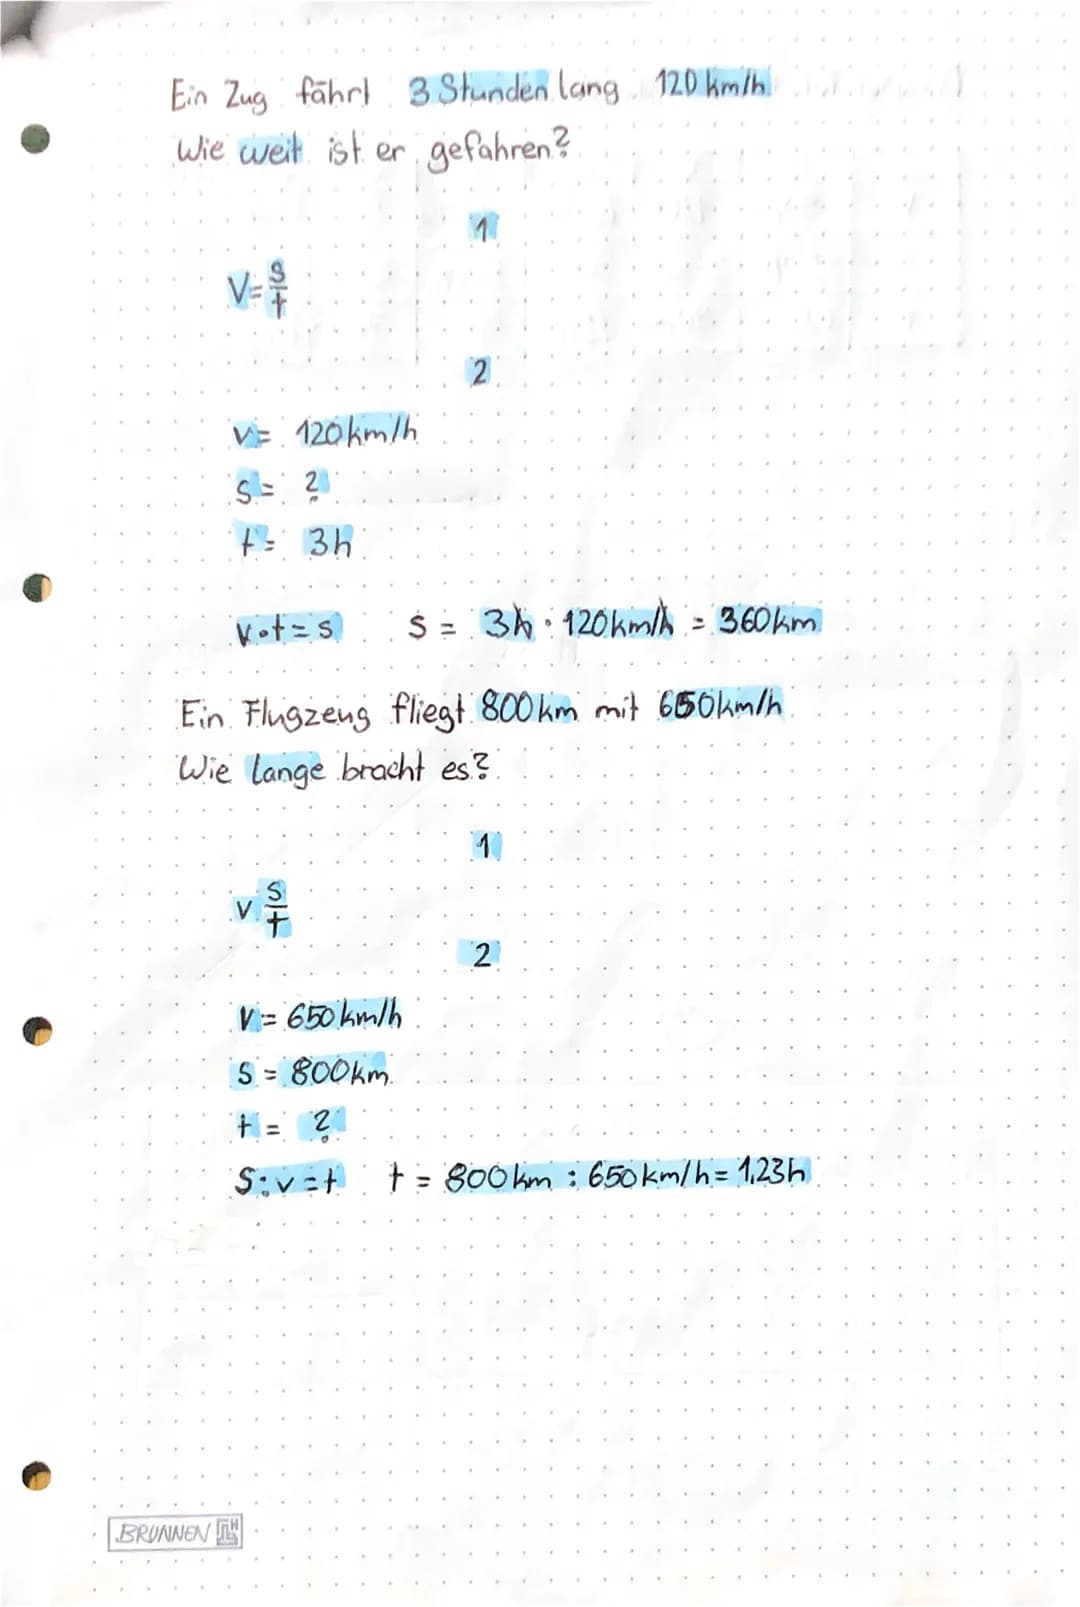 Ein Zug fährt 3 Stunden lang 120 km/h
Wie weit ist er gefahren?
1
V=s/t
2
v= 120km/h
s= ?
t= 3h
v·t=s s = 3h · 120km/h = 360km
Ein Flugzeug fliegt 800km mit 650km/h
Wie lange bracht es?
1
v s/t
2
V= 650km/h
S = 800km
t = ?
S:v=t t = 800km : 650km/h= 1,23h
BRUNNEN